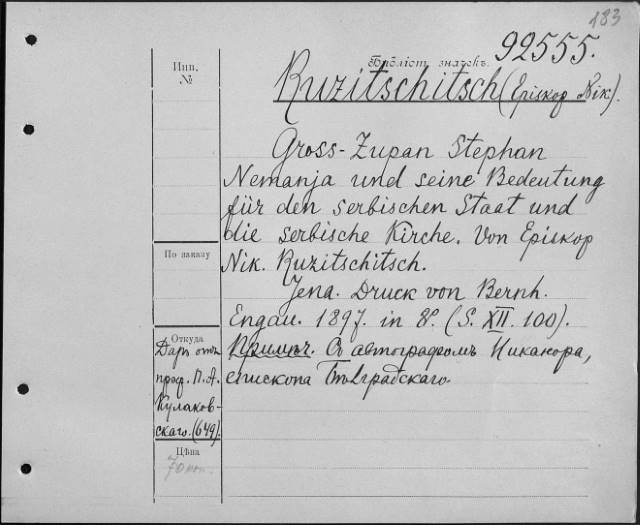 183
92555.
Библіот. значекъ.
Инв.
№
Ruzitschitsch (Episkop Nik).
Gross-Zupan Stephan
Nemanja und seine Bedeutung
für den serbischen Staat und
die serbische Kirche. Von Episkop
Nik. Ruzitschitsch.
Jena. Druck von Bernh.
Engau. 1897. in 8º. (S. XII. 100).
Примѣч. Съ автографомъ Никанора,
епископа Бѣлградскаго.
По заказу
Откуда
Даръ отъ
проф. П. А.
Кулаков-
скаго. (649).
Цѣна
70 коп.